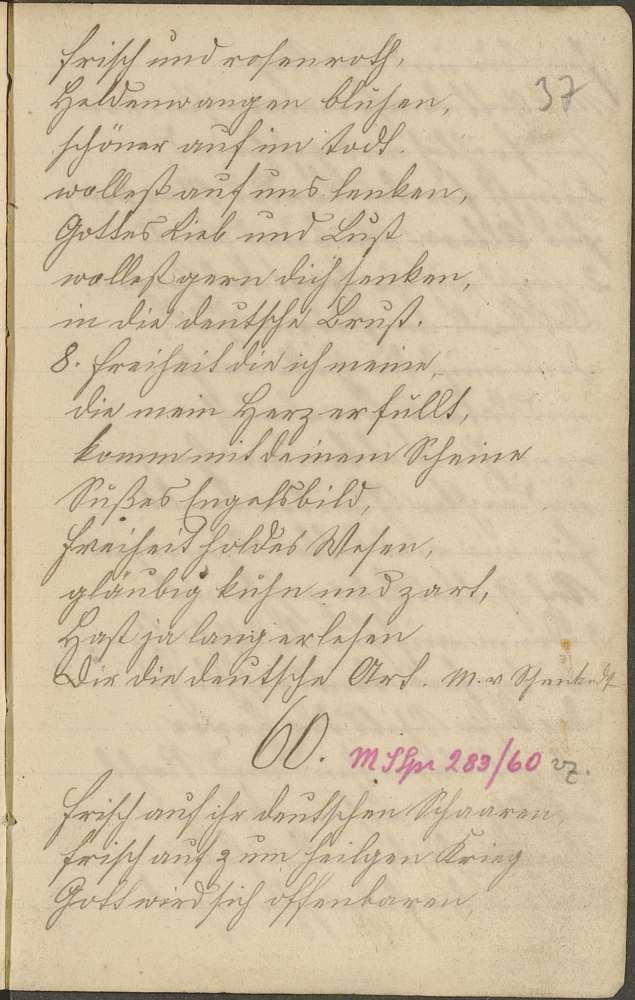 frisch und rosenroth,
37
Heldenwangen blühen,
schöner auf im Todt.
wollest auf uns lenken,
Gottes Lieb und Lust
wollest gern dich senken,
in die deutsche Brust.
8. Freiheit die ich meine,
die mein Herz erfüllt,
komm mit deinem Scheine
Süßes Engelsbild,
Freiheit holdes Wesen,
gläubig kühn und zart,
Hast ja lang erlesen
Dir die deutsche Art. M. v Schenkendf
60. M SHpr 283/60 vz.
Frisch auf ihr deutschen Schaaren,
frisch auf zum heilgen Krieg
Gott wird sich offenbaren,